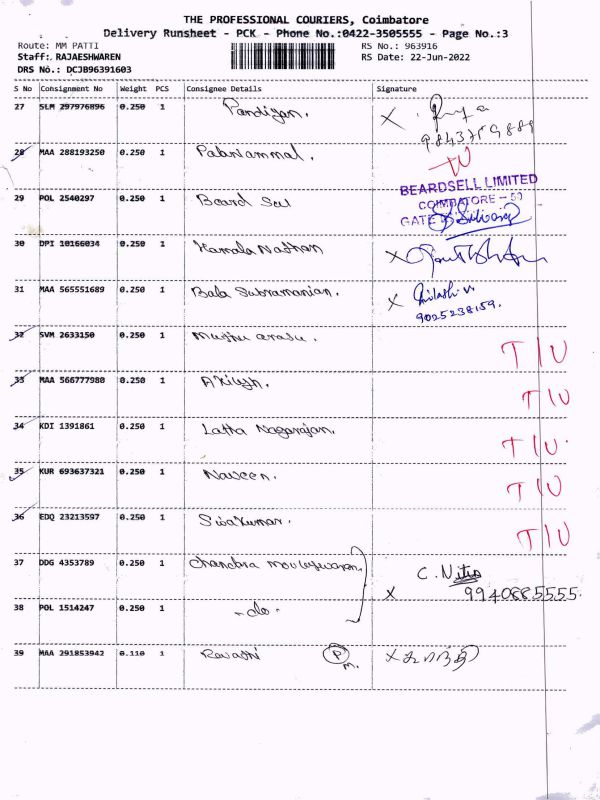 THE PROFESSIONAL COURIERS, Coimbatore
Delivery Runsheet - PCK - Phone No.:0422-3505555 - Page No.:3
Route: MM PATTI RS No.: 963916
Staff: RAJAESHWAREN RS Date: 22-Jun-2022
DRS No.: DCJB96391603
S No Consignment No Weight PCS Consignee Details Signature
27 SLM 297976896 0.250 1 Pandiyan.
9843759889
28 MAA 288193250 0.250 1 Palaniammal.
29 POL 2540297 0.250 1 Beard Sell
BEARDSELL LIMITED
COIMBATORE - 50
GATE
30 DPI 10166034 0.250 1 Kamala Nathan X
31 MAA 565551689 0.250 1 Bala Subramanian. X
9025238159.
32 SVM 2633150 0.250 1 Muthu arasu. T I U
33 MAA 566777980 0.250 1 Akilesh. T I U
34 KDI 1391861 0.250 1 Latha Nagarajan. T I U
35 KUR 693637321 0.250 1 Naveen. T I U
36 EDQ 23213597 0.250 1 Sivakumar. T I U
37 DDG 4353789 0.250 1 Chandra Mouleswaran. C. Nitin
X 9940685555.
38 POL 1514247 0.250 1 - do -
39 MAA 291853942 0.110 1 Revathi P M. X ரேவதி